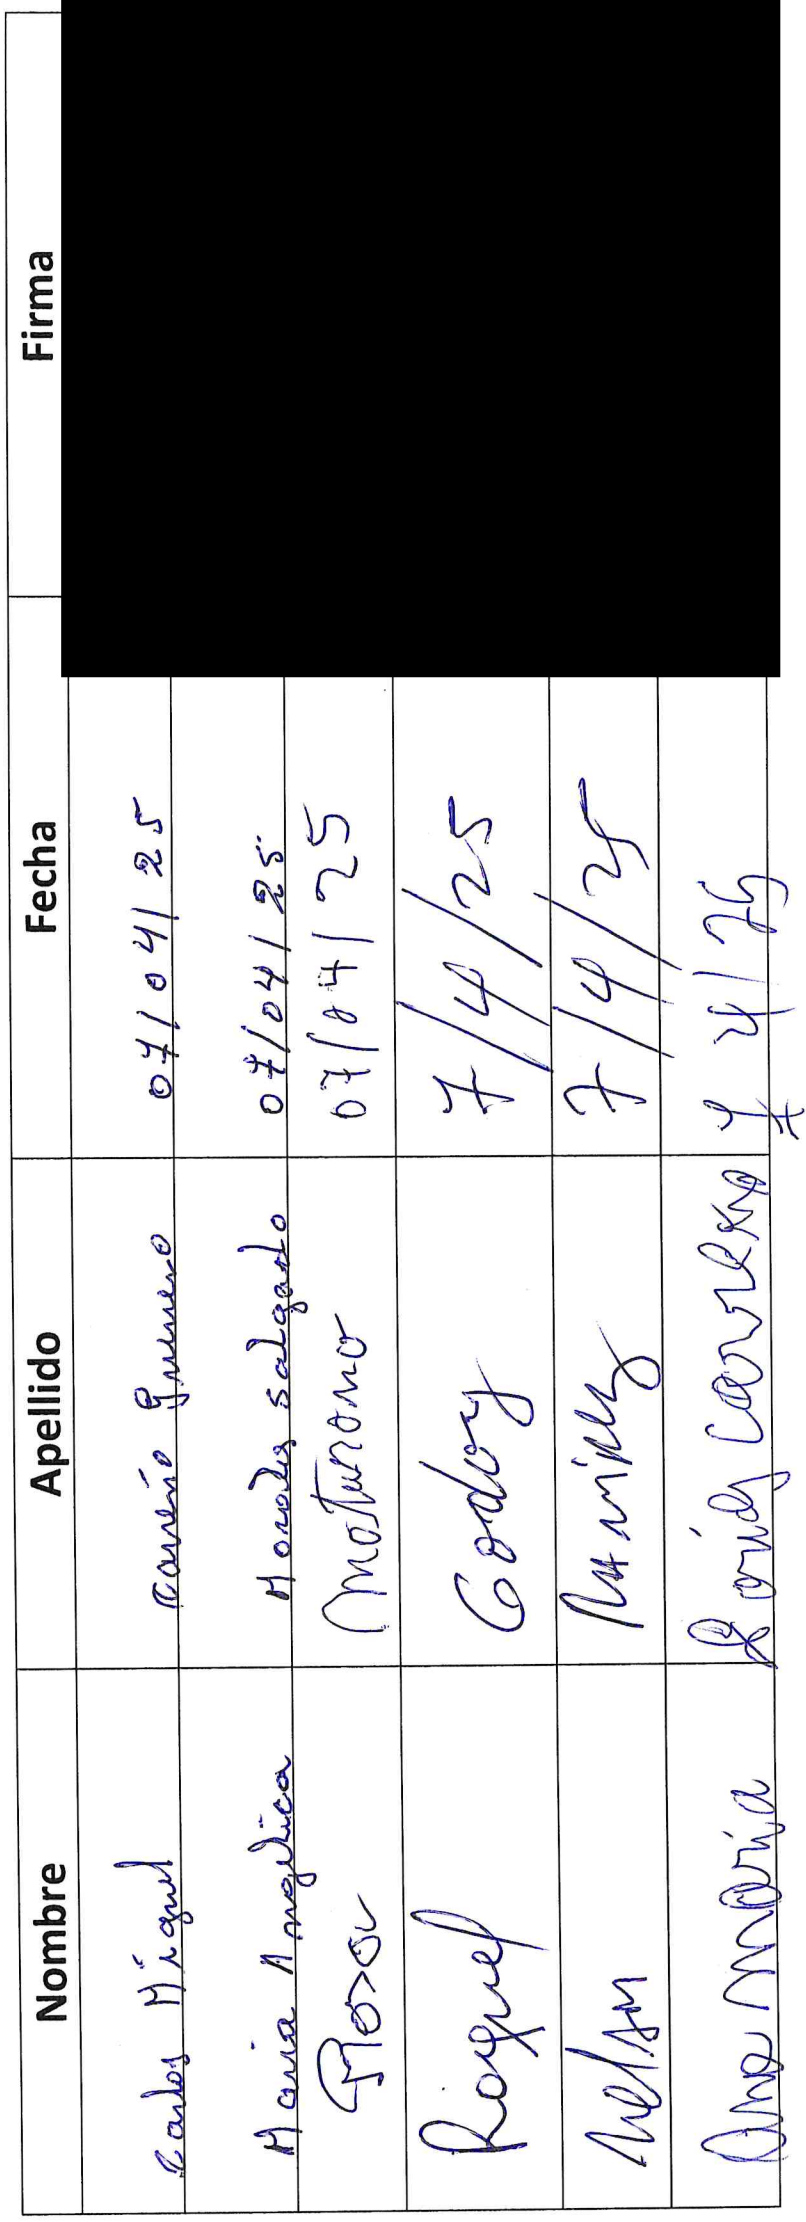 Nombre Apellido Fecha Firma
Carlos Miguel Carreño Guerrero 07/04/25
Maria Angelica Morales Salgado 07/04/25
Rosa Maturano 07/04/25
Raquel Godoy 7/4/25
Nelson Ramirez 7/4/25
Ana María 4/25